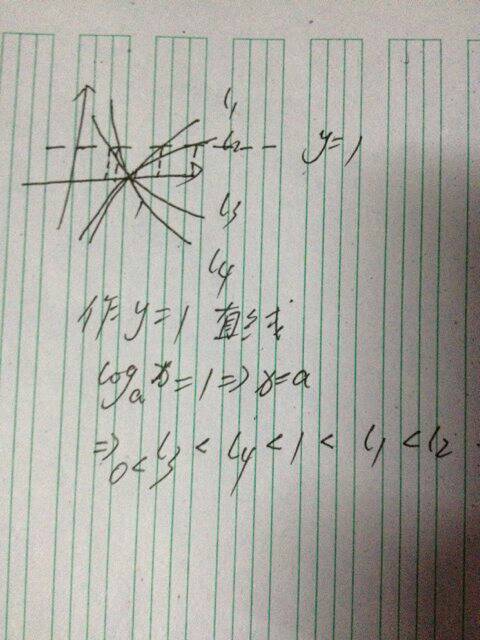 l₁
l₂
y=1
l₃
l₄
作 y=1 直线
logₐx=1⇒x=a
⇒0<l₃<l₄<1<l₁<l₂